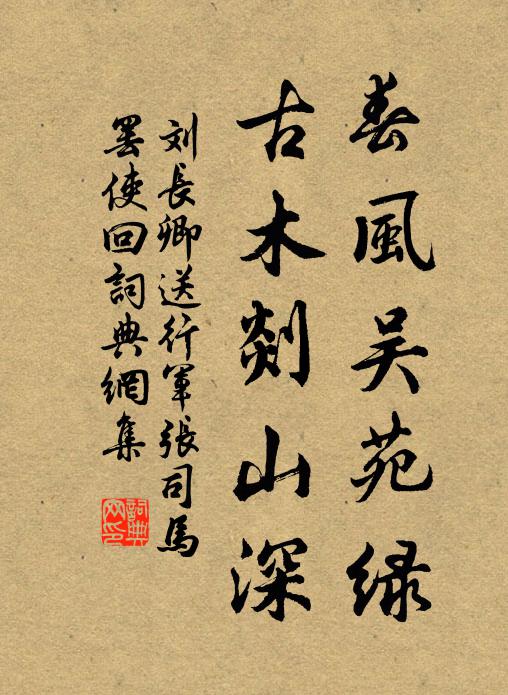 春風吴苑緑
古木剡山深
刘長卿送行軍張司馬
罢使回詞典網集
詞典
网印